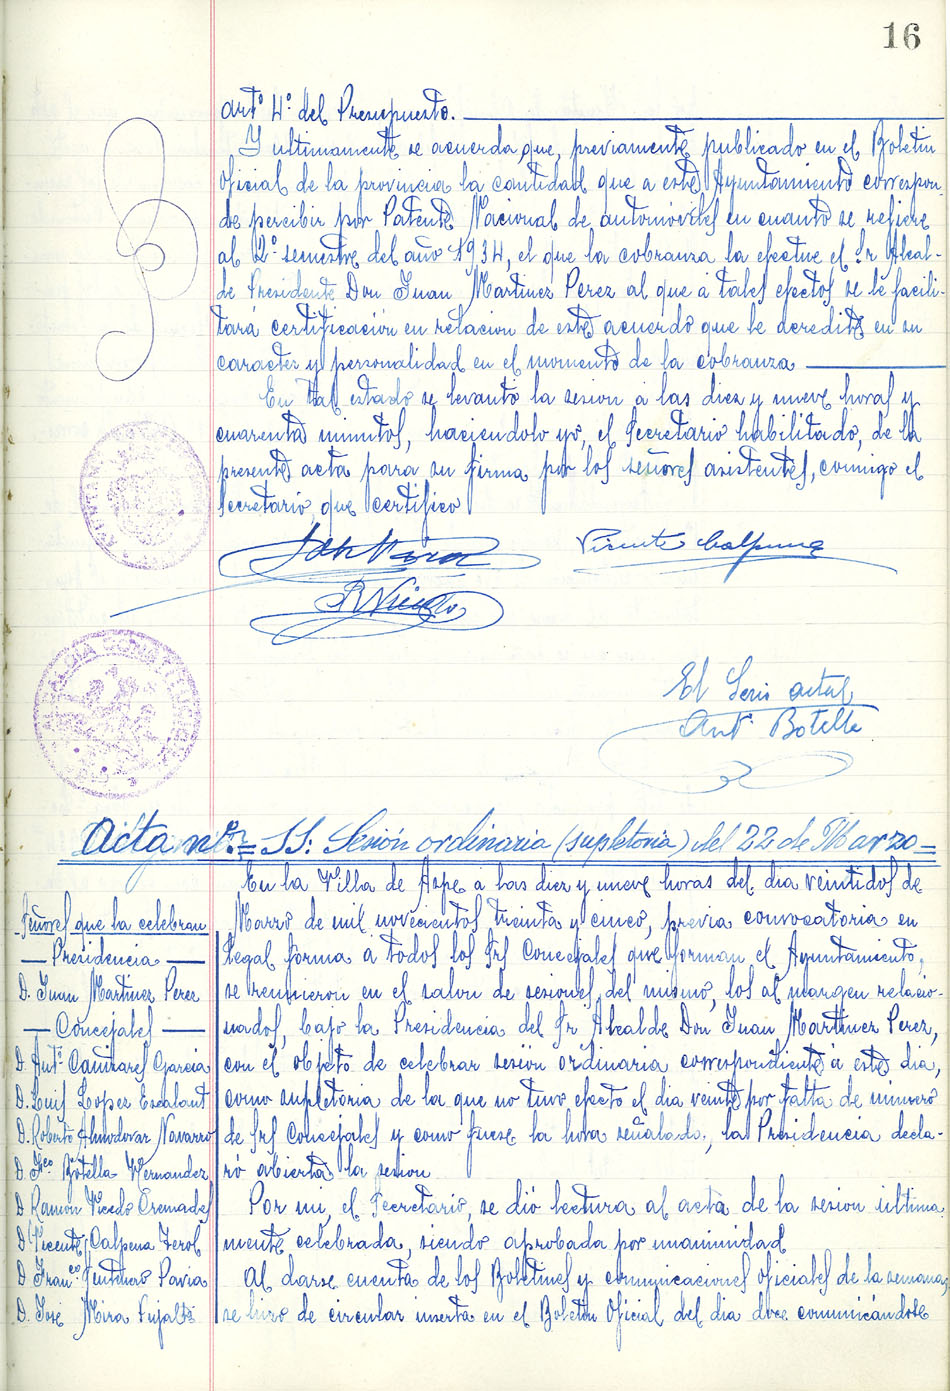 16
artº 4º del Presupuesto.
Y ultimamente se acuerda que, previamente publicado en el Boletin
Oficial de la provincia la cantidad que a este Ayuntamiento correspon-
de percibir por Patente Nacional de automóviles en cuanto se refiere
al 2º semestre del año 1934, el que la cobranza la efectue el Sr Alcal-
de Presidente Don Juan Martinez Perez al que á tales efectos se le facili-
tará certificación en relacion de este acuerdo que le acredite en su
caracter y personalidad en el momento de la cobranza
En tal estado se levantó la sesion á las diez y nueve horas y
cuarenta minutos, haciendolo yo, el Secretario habilitado, de la
presente acta para su firma por los señores asistentes, conmigo el
Secretario, que certifico
Vicente Calpena
R Vicedo
El Serio actal
Antº Botella
Acta nº 11: Sesión ordinaria (supletoria) del 22 de Marzo=
En la Villa de Aspe á las diez y nueve horas del dia veintidos de
Marzo de mil novecientos treinta y cinco, previa convocatoria en
legal forma a todos los Srs Concejales que forman el Ayuntamiento,
se reunieron en el salon de sesiones del mismo, los al margen relacio-
nados, bajo la Presidencia del Sr Alcalde Don Juan Martinez Perez,
con el objeto de celebrar sesión ordinaria correspondiente á este dia,
como supletoria de la que no tuvo efecto el dia veinte por falta de número
de Srs Concejales y como fuese la hora señalada, la Presidencia decla-
ró abierta la sesion
Por mi, el Secretario, se dió lectura al acta de la sesion última-
mente celebrada, siendo aprobada por unanimidad
Al darse cuenta de los Boletines y comunicaciones oficiales de la semana,
se hizo de circular inserta en el Boletin Oficial del dia doce comunicándose
Señores que la celebran
Presidencia
D. Juan Martinez Perez
Concejales
D. Antº Cañizares Garcia
D. Luis Lopez Escalant
D. Roberto Almodovar Navarro
D. Fco Botella Hernandez
D Ramon Vicedo Cremades
D Vicente Calpena Terol
D Francº Pavia
D. José Mira Pujalte